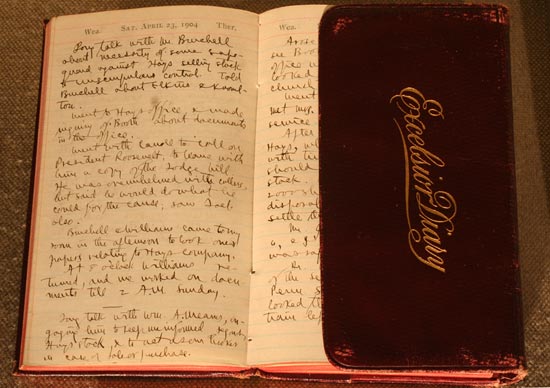 Wea. SAT. APRIL 23, 1904 Ther.
Long talk with Mr. Burchell
about necessity of some safe-
guard against Hays selling stock
to unscrupulous control. Told
Burchell about Elkins &
ton.
Went to Hays office & made
inquiry of Booth about documents
in the office.
Went with to call on
President Roosevelt, to leave with
him a copy of the Lodge bill
He was overwhelmed with callers,
but said he would do what he
could for the cause; saw Taft
also.
Burchell & Williams came to my
room in the afternoon to look over
papers relating to Hays company.
At 8 o'clock Williams re-
turned, and we worked on docu-
ments till 2 A.M. Sunday.
Long talk with Wm. A. Means, en-
gaging him to keep me informed
Hays stock, & to act as our broker
in case of sale or purchase.
Wea.
see
office
looked
church
went
met Mrs.
service
After
Hays,
with
should
stock
disposal
settle
was
of the
Penn
looked
train
Excelsior Diary